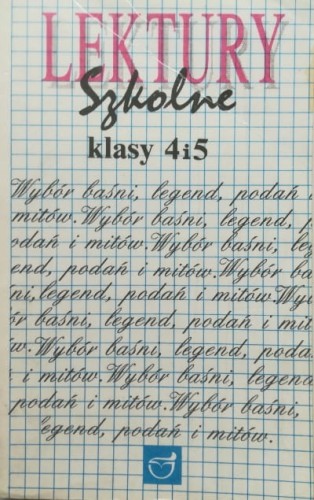 LEKTURY
Szkolne
klasy 4i5
Wybór baśni, legend, podań
mitów. Wybór baśni, legend,
podań i mitów. Wybór baśni,
end, podań i mitów. Wybór ba
ni, legend, podań i mitów. Wy
ór baśni, legend, podań i mit
w. Wybór baśni, legend, poda
i mitów. Wybór baśni, legend
podań i mitów. Wybór baśni,
legend, podań i mitów.